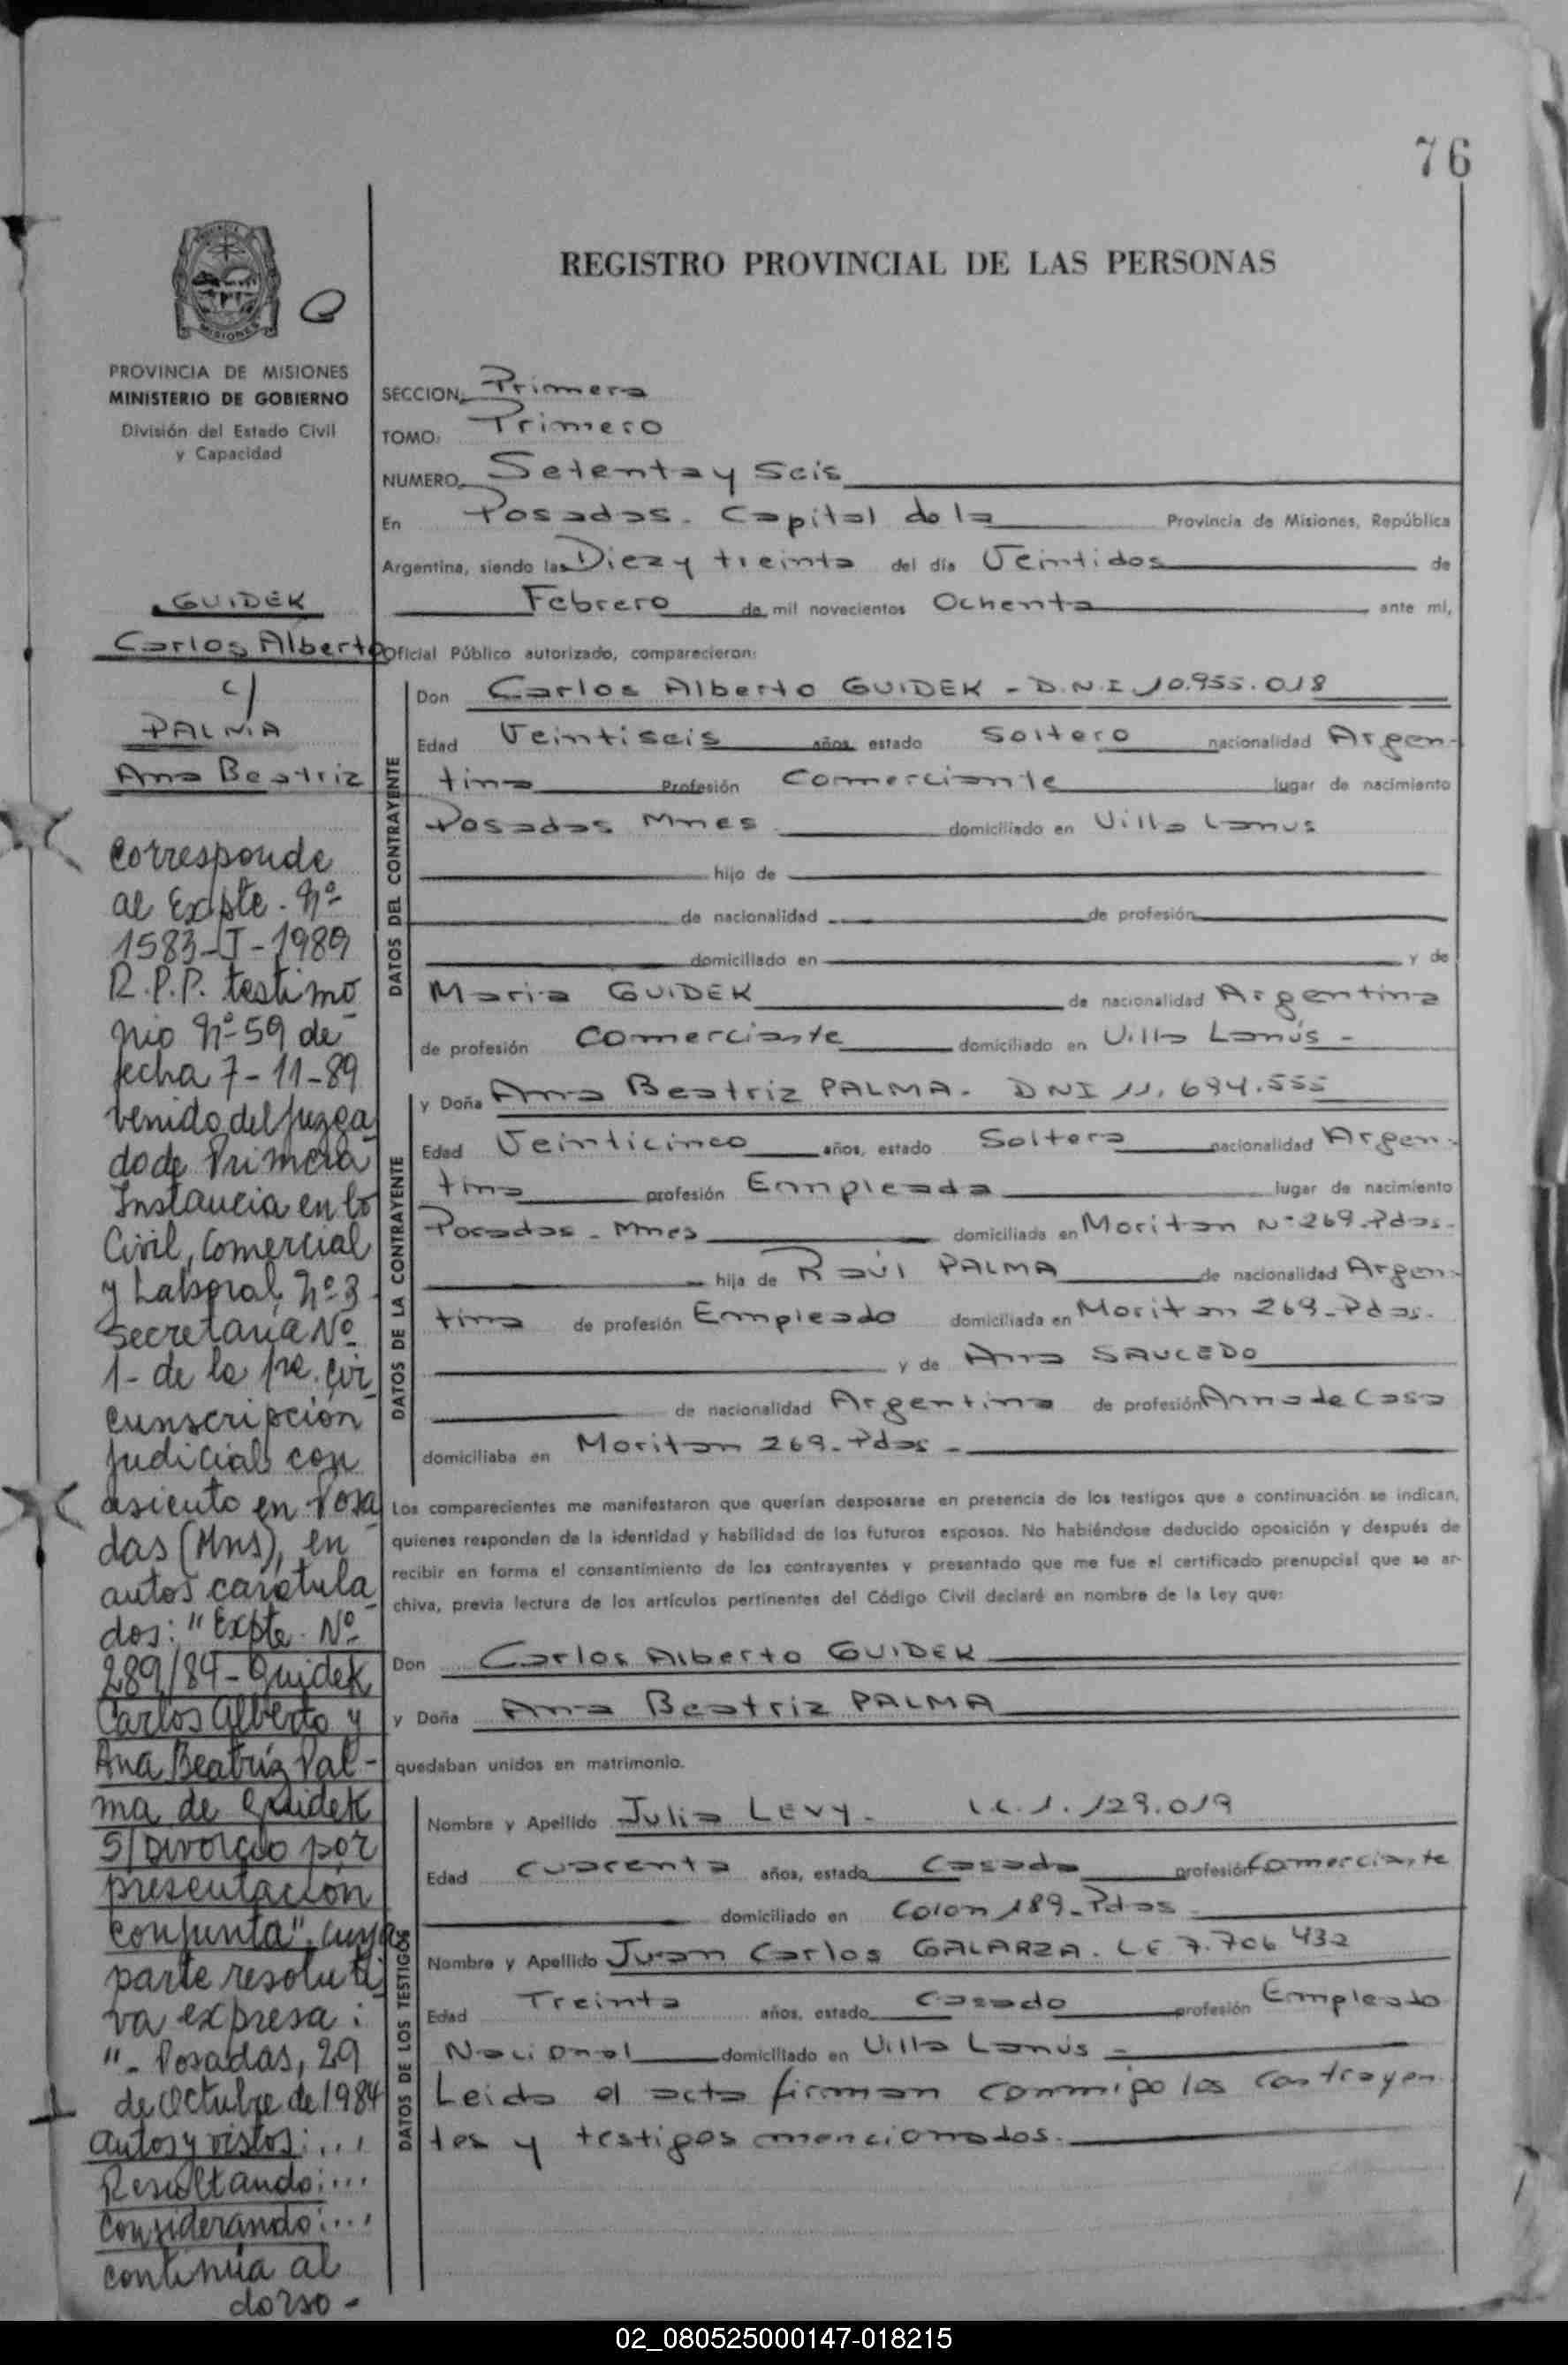 76
REGISTRO PROVINCIAL DE LAS PERSONAS
MISIONES
PROVINCIA DE MISIONES
MINISTERIO DE GOBIERNO
División del Estado Civil
y Capacidad
GUIDEK
Carlos Alberto
c/
PALMA
Ana Beatriz
Corresponde
al Expte. Nº
1583-I-1989
R.P.P. testimo
nio Nº 59 de
fecha 7-11-89
venido del Juzga
do de Primera
Instancia en lo
Civil, Comercial
y Laboral Nº 3
Secretaría Nº
1- de la 1ra. Cir
cunscripción
Judicial con
asiento en Posa
das (Mns), en
autos caratula
dos: "Expte. Nº
289/84 - Guidek
Carlos Alberto y
Ana Beatríz Pal-
ma de Guidek
S/ Divorcio por
presentación
conjunta", cuya
parte resoluti
va expresa:
"- Posadas, 29
de Octubre de 1984
Autos y vistos: ...
Resultando: ...
Considerando: ...
continúa al
dorso -
SECCION, Primera
TOMO: Primero
NUMERO, Setenta y Seis
En Posadas. Capital de la Provincia de Misiones, República
Argentina, siendo las Diez y treinta del día Veintidos de
Febrero de mil novecientos Ochenta ante mí,
Oficial Público autorizado, comparecieron:
DATOS DEL CONTRAYENTE
Don Carlos Alberto GUIDEK - D.N.I. 10.955.018
Edad Veintiseis años, estado Soltero nacionalidad Argen-
tina Profesión Comerciante lugar de nacimiento
Posadas Mnes domiciliado en Villa Lanus
hijo de
de nacionalidad de profesión
domiciliado en y de
Maria GUIDEK de nacionalidad Argentina
de profesión Comerciante domiciliado en Villa Lanús -
DATOS DE LA CONTRAYENTE
y Doña Ana Beatriz PALMA. DNI 11.694.555
Edad Veinticinco años, estado Soltera nacionalidad Argen-
tina profesión Empleada lugar de nacimiento
Posadas - Mnes domiciliada en Moritan Nº 269. Pdas.
hija de Raúl PALMA de nacionalidad Argen-
tina de profesión Empleado domiciliada en Moritan 269- Pdas.
y de Ana SAUCEDO
de nacionalidad Argentina de profesión Ama de Casa
domiciliaba en Moritan 269- Pdas -
Los comparecientes me manifestaron que querían desposarse en presencia de los testigos que a continuación se indican,
quienes responden de la identidad y habilidad de los futuros esposos. No habiéndose deducido oposición y después de
recibir en forma el consentimiento de los contrayentes y presentado que me fue el certificado prenupcial que se ar-
chiva, previa lectura de los artículos pertinentes del Código Civil declaré en nombre de la Ley que:
Don Carlos Alberto GUIDEK
y Doña Ana Beatriz PALMA
quedaban unidos en matrimonio.
DATOS DE LOS TESTIGOS
Nombre y Apellido Julia LEVY. 1.129.019
Edad Cuarenta años, estado Casada profesión Comerciante
domiciliado en Colon 189- Pdas -
Nombre y Apellido Juan Carlos GALARZA. LE 7.706 432
Edad Treinta años, estado Casado profesión Empleado
Nacional domiciliado en Villa Lanús -
Leida el acta firman conmigo los contrayen
tes y testigos mencionados.
02_080525000147-018215